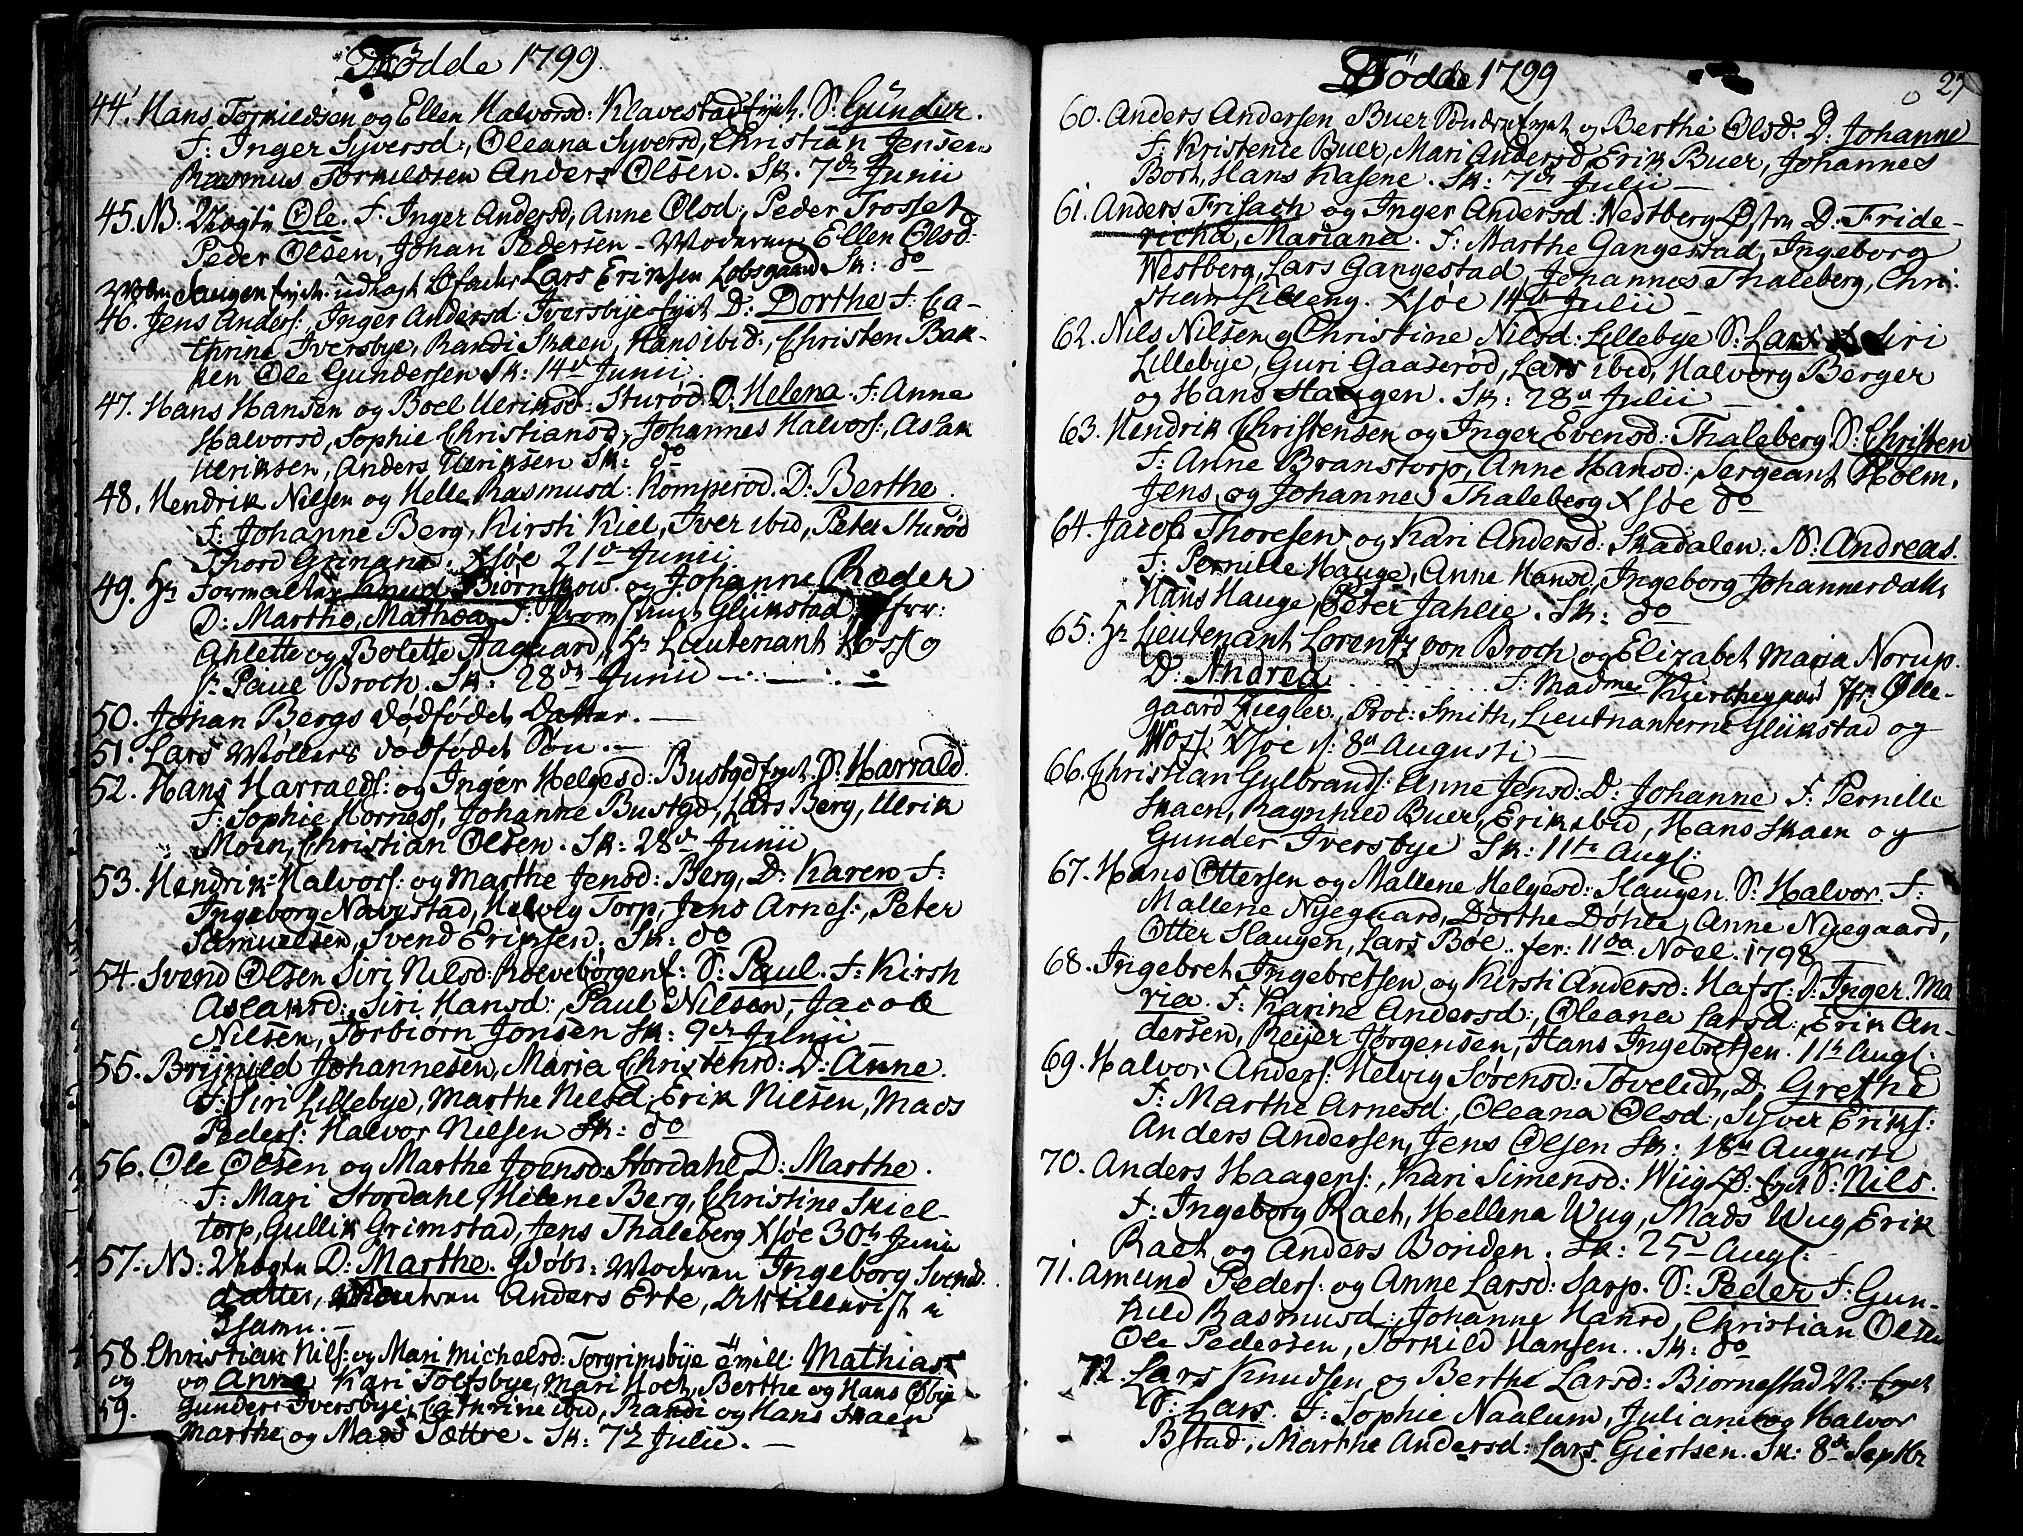 Fødde 1799.
44. Hans Torkildsen og Ellen Halvorsd: Klavestad Eyet. S: Gunder.
F: Inger Syversd:, Oleana Syversd, Christian Jensen
Rasmus Torkildsen Anders Olsen. Sk. 7de Junii
45. NB: Uægte Ole. F: Inger Andersd, Anne Olsd:, Peder Trosset
Peder Olsen, Johan Pedersen - Moderen: Ellen Olsd:
Haugen Eyet. udlagt Bfader Lars Eriksen Lobsgaard. Sk: do
46. Jens Anders:, Inger Andersd: Iversbye Eyet D: Dorthe F: Ca-
thrine Iversbye, Randi Skaen, Hans ibid:, Christen Bak-
ken Ole Gundersen Sk: 14d Junii.
47. Hans Hansen og Boel Ulriksd: Sturød. D: Helena. F: Anne
Halvorsd, Sophie Christiansd, Johannes Halvors:, Aslak
Ulriksen, Anders Ulriksen Sk: do
48. Hendrik Nilsen og Helle Rasmusd: Komperød. D: Berthe.
F: Johanne Berg, Kirsti Kiel, Iver ibid, Peter Sturød
Thord Grinane. Xsøe 21d Junii.
49. Hr Formalter Knud Biørnskow og Johanne Røder
D: Marthe, Mathea, F: Glükstad, Jfrr:
Ahlette og Bolette Aagaard, Hr Lieutenant Voss og
Sr Paul Broch. Sk: 28de Junii
50. Johan Bergs dødfødet Datter.
51. Lars Møllers dødfødet Søn.
52. Hans Harralds: og Inger Helgesd: Bustgd Eyet. S: Harrald.
F: Sophie Horness, Johanne Bustgd, Lars Berg, Ulrik
Moen, Christian Olsen. Sk: 28d Junii
53. Hendrik Halvors: og Marthe Jensd: Berg, D: Karen F:
Ingeborg Navestad, Helvig Torp, Jens Arnes:, Peter
Samuelsen, Svend Eriksen. Sk: do
54. Svend Olsen Siri Nilsd: Rolvsborgen E: S: Paul. F: Kirsti
Aslaksd:, Siri Hansd:, Paul Nilsen, Jacob
Nilsen, Torbiørn Jonsen Sk: 9d Junii
55. Brijnild Johannesen, Maria Christensd: D: Anne.
F: Siri Lillebye, Marthe Nilsd, Erik Nilsen, Mads
Peders: Halvor Nilsen Sk: do
56. Ole Olsen og Marthe Joensd: Stordahl D: Marthe.
F: Mari Stordahl, Helene Berg, Christine Skiel-
torp, Gullik Grimstad, Jens Thaleberg Xsøe 30te Junii
57. NB: Uægte D: Marthe. Moderen Ingeborg Svends
datter, Faderen Anders Erte, Artillerist i
58. Christian Nils: og Mari Michelsd: Torgrimsbye Tvill: Mathias
og og Anne Kari Toltsbye, Mari Hoel, Berthe og Hans Øbye
59. Gunder Iversbye, Cathrine ibid, Randi og Hans Skaen
Marthe og Mads Sættre. Sk: 7de Julii.
Fødde 1799 27
60. Anders Andersen Buer Søndre Eyet og Berthe Olsd: D: Johanne
F: Kristenie Buer, Mari Andersd, Erik Buer, Johannes
Bort, Hans Kasene. Sk: 7de Julii
61. Anders Frisach og Inger Andersd: Westberg Østre D: Fride-
richa, Mariana. F: Marthe Gangestad, Ingeborg
Westberg, Lars Gangestad, Johannes Thaleberg, Chri-
stian Lilleng. Xsøe 14de Julii
62. Nils Nilsen og Christine Nilsd: Lillebye S: Lars F: Siri
Lillebye, Guri Gaaserød, Lars ibid, Halvorg Berger
og Hans Haugen. Sk: 28d Julii
63. Hendrik Christensen og Inger Evensd: Thaleberg S: Christen
F: Anne Branstorp, Anne Hansd: Sergeant Holm,
Jens og Johanne Thaleberg Xsøe do
64. Jacob Thoresen og Kari Andersd: Skadalen: S: Andreas.
F: Pernille Hauge, Anne Hansd, Ingeborg Johannesdatt:
Hans Hauge, Peter Jahlie. Sk: do
65. Hr Lieutenant Lorentz von Broch og Elizabet Maria Norup.
D: Andrea F: Madme Kierchegaard Jfr: Olle-
gaard Ziegler, Proc: Smith, Lieutnanterne Glükstad og
Woss: Xsøe d: 8de Augusti
66. Christian Gulbrands: Anne Jensd: D: Johanne F: Pernille
Skaen, Ragnhild Buer, Erik ibid, Hans Skaen og
Gunder Iversbye Sk: 11te Augs:
67. Hans Ottersen og Mallene Helgesd: Slaugen. S: Halvor. F:
Mallene Nyegaard, Dorthe Døhle, Anne Nyegaard,
Otter Slaugen, Lars Bøe. fer: 11da Noel. 1798
68. Ingebret Ingebretsen og Kirsti Andersd: Hafs: D: Inger Ma
ria. F: Karine Andersd:, Oleana Larsd:, Erik An-
dersen, Reijer Jørgensen, Hans Ingebretsen. 11te Augs:
69. Halvor Anders: Helvig Sørensd: Tovelid, D: Grethe
F: Marthe Arnesd:, Oleana Olsd, Syver Eriks:
Anders Andersen, Jens Olsen Sk: 18de Augusti
70. Anders Haagens:, Kari Simensd: Wiig Ø: Eyet S: Nils.
F: Ingeborg Raet, Hellena Wug, Mads Wug, Erik
Raet og Anders Boriden. Sk: 25d Augs:
71. Amund Peders: og Anne Larsd: Sarp. S: Peder F: Gun-
hild Rasmusd:, Johanne Hansd, Christian Olsen
Ole Pedersen, Torkild Hansen. Sk: do
72. Lars Knudsen og Berthe Larsd: Biørnestad N: Eyet
S: Lars. F: Sophie Naalum, Juliane og Halvor
Bstad, Marthe Andersd: Lars Giertsen. Sk: 8de Septbr